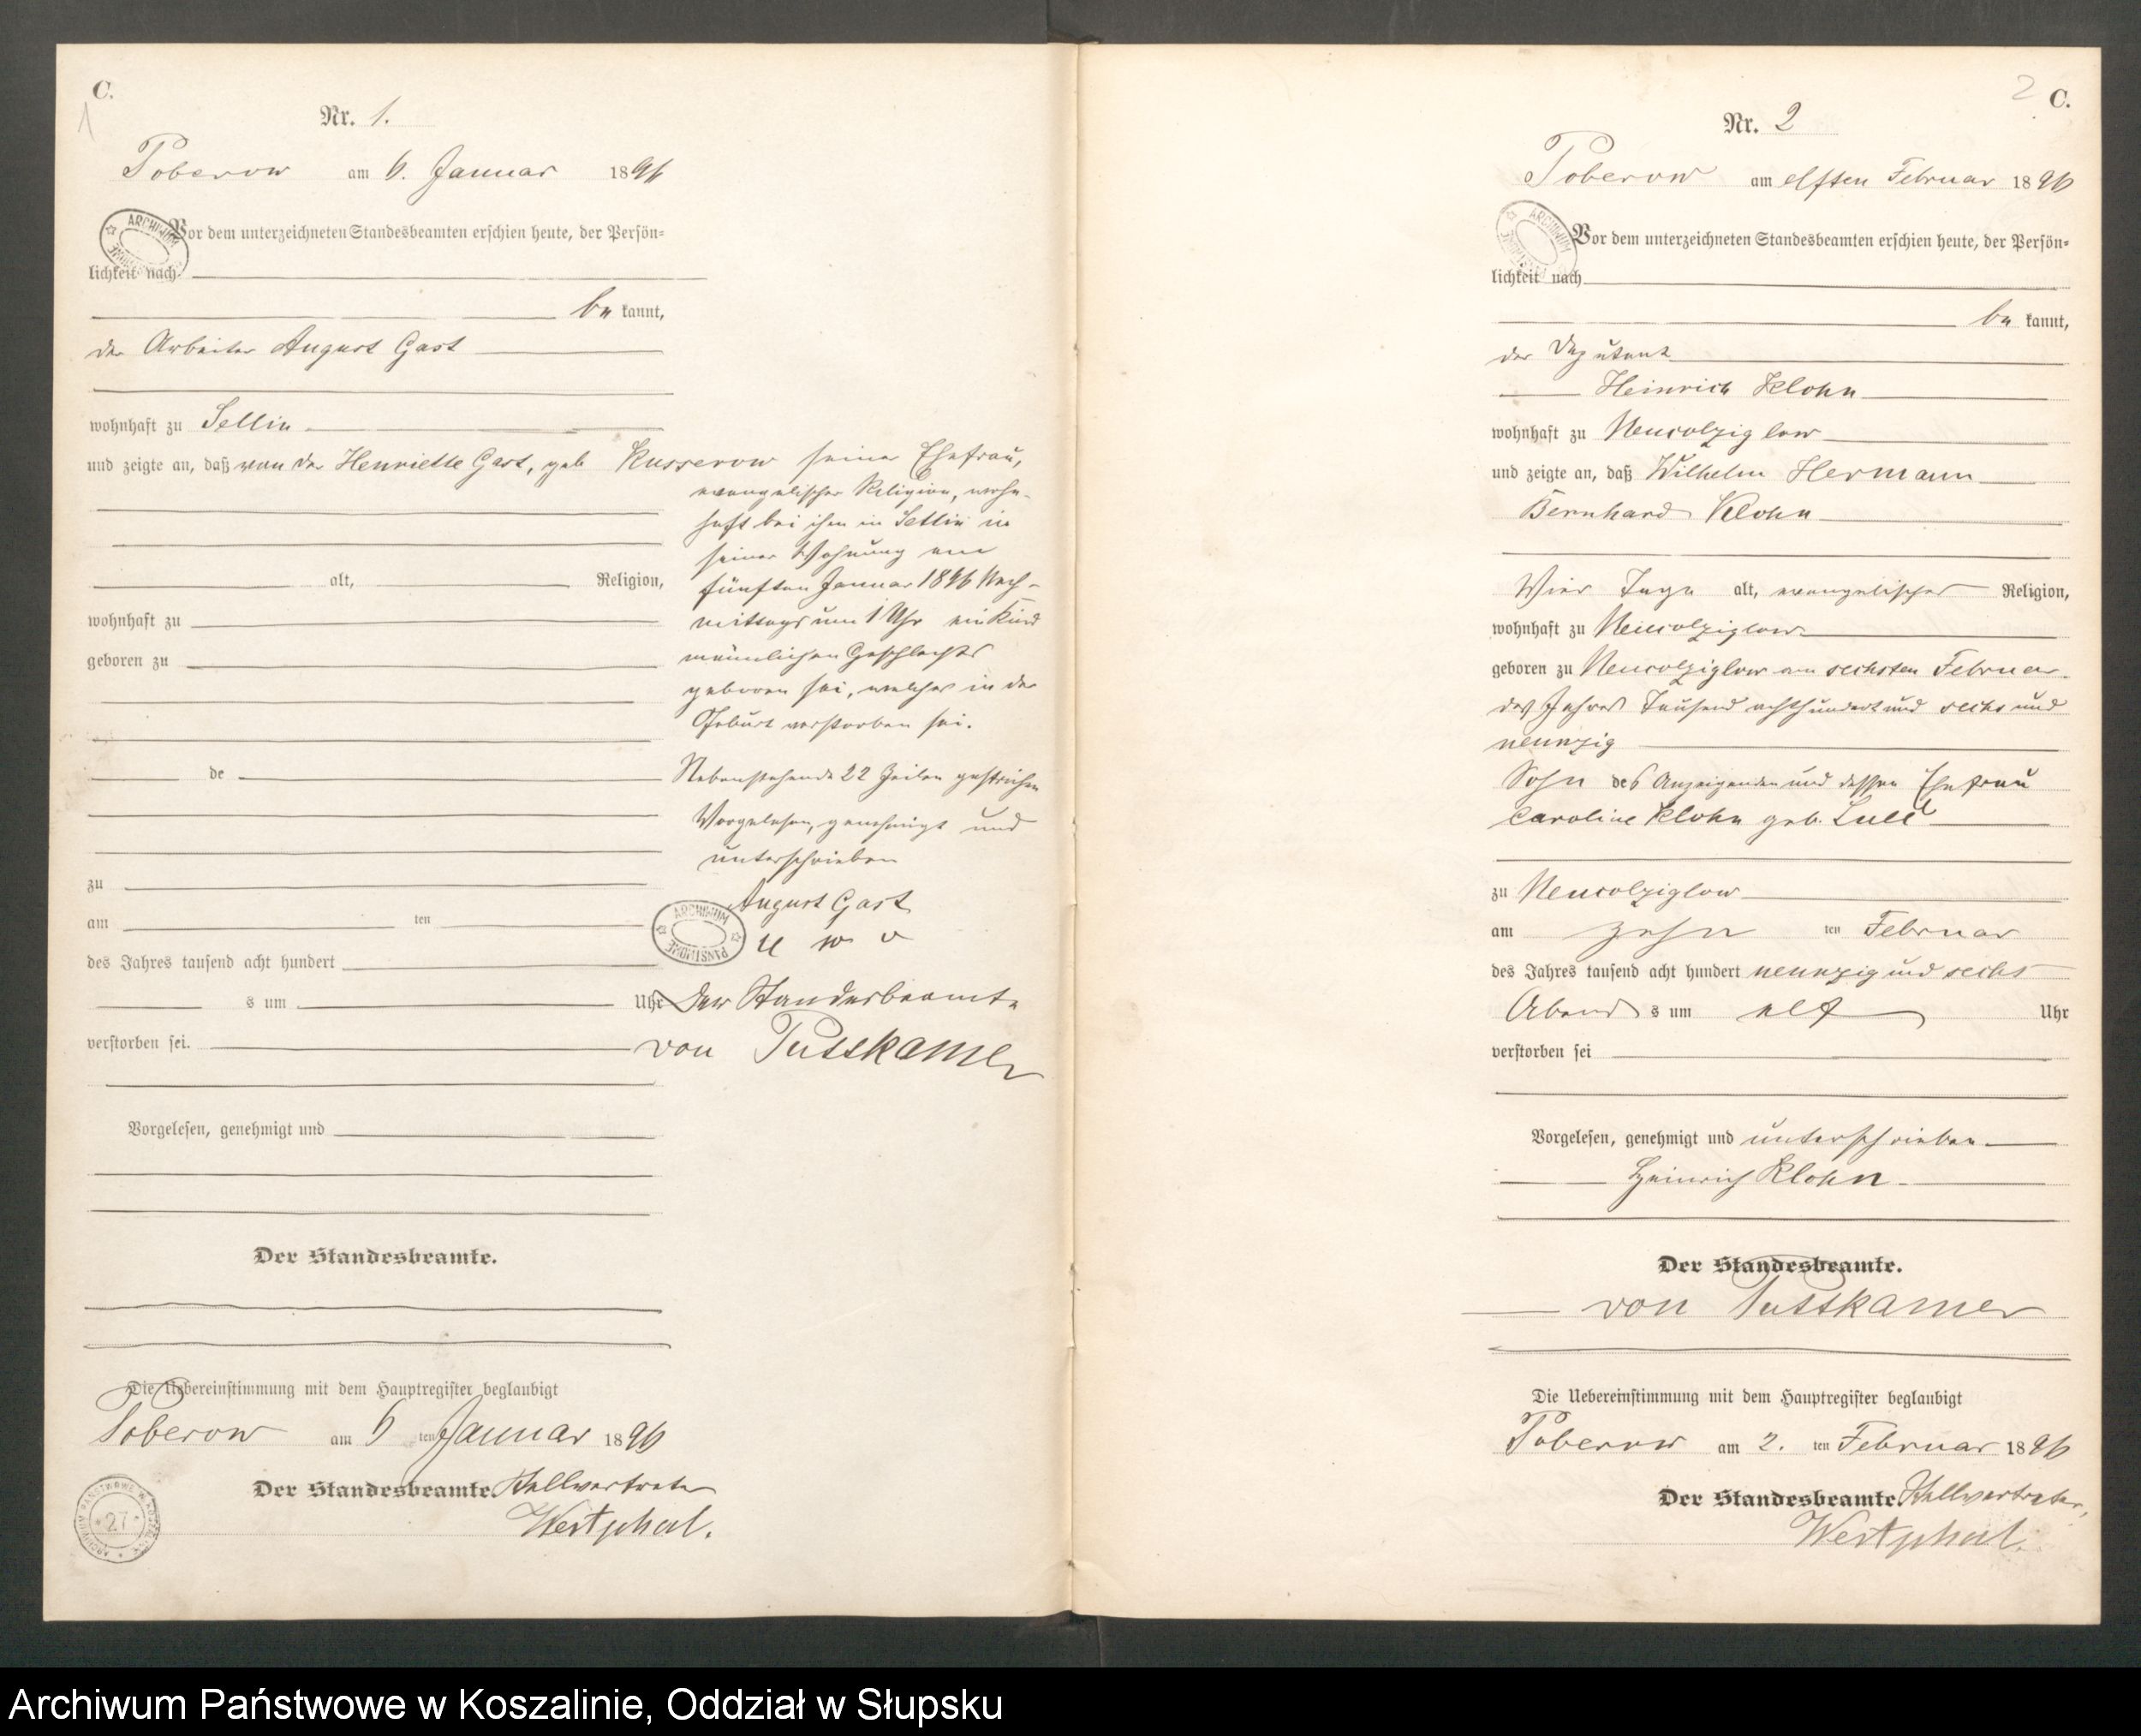 C.
1
Nr. 1.
Poberow am 6. Januar 1896
Vor dem unterzeichneten Standesbeamten erschien heute, der Persön-
lichkeit nach
be kannt,
der Arbeiter August Gast
wohnhaft zu Sellin
und zeigte an, daß von der Henriette Gast, geb Kusserow seiner Ehefrau,
evangelischer Religion, wohn-
haft bei ihm in Sellin in
seiner Wohnung am
fünften Januar 1896 Nach-
mittags um 1 Uhr ein Kind
männlichen Geschlechts
geboren sei, welches in der
Geburt verstorben sei.
alt, Religion,
wohnhaft zu
geboren zu
de
Nebenstehende 22 Zeilen gestrichen
Vorgelesen, genehmigt und
unterschrieben
August Gast
zu
am ten
des Jahres tausend acht hundert
s um Uhr
Der Standesbeamte
von Puttkamer
verstorben sei.
Vorgelesen, genehmigt und
Der Standesbeamte.
Die Uebereinstimmung mit dem Hauptregister beglaubigt
Poberow am 6 ten Januar 1896
Der Standesbeamte Stellvertreter
Westphal.
ARCHIWUM PAŃSTWOWE
27
2 C.
Nr. 2
Poberow am elften Februar 1896
Vor dem unterzeichneten Standesbeamten erschien heute, der Persön-
lichkeit nach
be kannt,
der Deputant
Heinrich Klohn
wohnhaft zu Neucolziglow
und zeigte an, daß Wilhelm Hermann
Bernhard Klohn
Vier Tage alt, evangelischer Religion,
wohnhaft zu Neucolziglow
geboren zu Neucolziglow am sechsten Februar
des Jahres Tausend achthundert und sechs und
neunzig
Sohn des Anzeigenden und dessen Ehefrau
Caroline Klohn geb.
zu Neucolziglow
am zehn ten Februar
des Jahres tausend acht hundert neunzig und sechs
Abend s um elf Uhr
verstorben sei
Vorgelesen, genehmigt und unterschrieben
Heinrich Klohn
Der Standesbeamte.
von Puttkamer
Die Uebereinstimmung mit dem Hauptregister beglaubigt
Poberow am 2. ten Februar 1896
Der Standesbeamte Stellvertreter,
Westphal.
Archiwum Państwowe w Koszalinie, Oddział w Słupsku